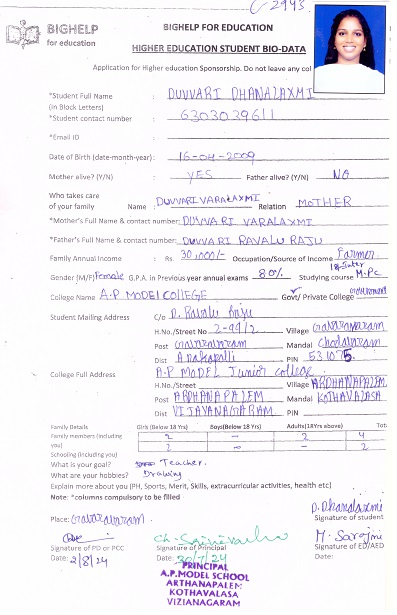 C-2943
BIGHELP
for education
BIGHELP FOR EDUCATION
HIGHER EDUCATION STUDENT BIO-DATA
Application for Higher education Sponsorship. Do not leave any col
*Student Full Name DUVVARI DHANALAXMI
(in Block Letters)
*Student contact number : 6303039611
*Email ID :
Date of Birth (date-month-year): 16-04-2009
Mother alive? (Y/N) YES Father alive? (Y/N) NO
Who takes care
of your family Name : DUVVARI VARALAXMI Relation MOTHER
*Mother's Full Name & contact number: DUVVARI VARALAXMI
*Father's Full Name & contact number: DUVVARI RAVALU RAJU
Family Annual Income : Rs. 30,000/- Occupation/Source of Income Farmer
Gender (M/F) Female G.P.A. in Previous year annual exams 80% Studying course 1st Inter M.P.C
College Name A.P MODEL COLLEGE Govt/ Private College Government
Student Mailing Address C/o D. Ravalu Raju
H.No./Street No 2-99/2 Village Gavaravaram
Post Gavaravaram Mandal Chodavaram
Dist Anakapalli PIN 531075
College Full Address A.P MODEL Junior college
H.No./Street Village ARDHANAPALEM
Post ARDHANAPALEM Mandal KOTHAVALASA
Dist VIJAYANAGARAM PIN
Family Details Girls (Below 18 Yrs) Boys(Below 18 Yrs) Adults(18Yrs above) Tot
Family members (including you) 2 - 2 4
Schooling (including you) 2 - - 2
What is your goal? Teacher.
What are your hobbies? Drawing
Explain more about you (PH, Sports, Merit, Skills, extracurricular activities, health etc)
Note: *columns compulsory to be filled
D. Dhanalaxmi
Place: Gavaravaram. Signature of student
M. Sarojini
Signature of PD or PCC Signature of Principal Signature of ED/AED
Date: 2/8/24 Date: 30/7/24 Date:
PRINCIPAL
A.P.MODEL SCHOOL
ARTHANAPALEM
KOTHAVALASA
VIZIANAGARAM